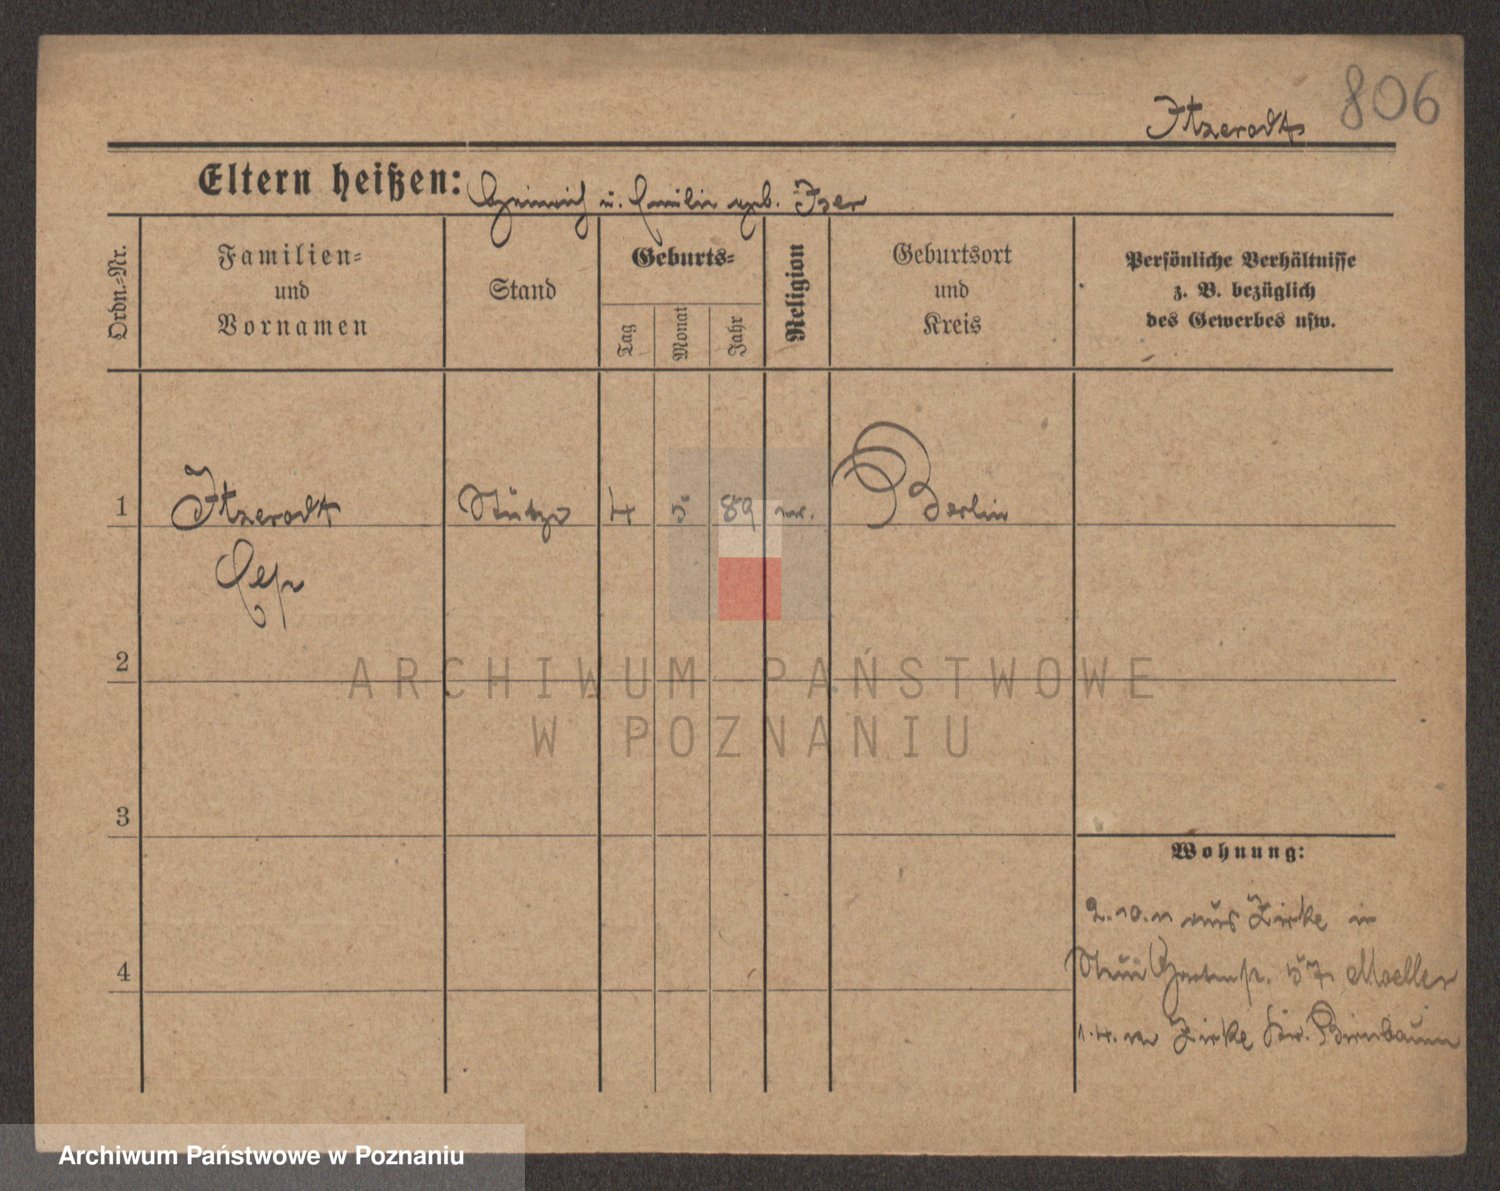 806
Itzerodt
Eltern heißen: Heinrich u. Emilie geb. Iser
Ordn.-Nr.
Familien-
und
Vornamen
Stand
Geburts-
Tag
Monat
Jahr
Religion
Geburtsort
und
Kreis
Persönliche Verhältnisse
z. B. bezüglich
des Gewerbes usw.
1 Itzerodt Stütze 4 5 89 ev. Berlin
2
3
4
Wohnung:
2.10.11 aus Zirke in
57 Moeller
1.4. Zirke Kr. Birnbaum
ARCHIWUM PAŃSTWOWE
W POZNANIU
Archiwum Państwowe w Poznaniu